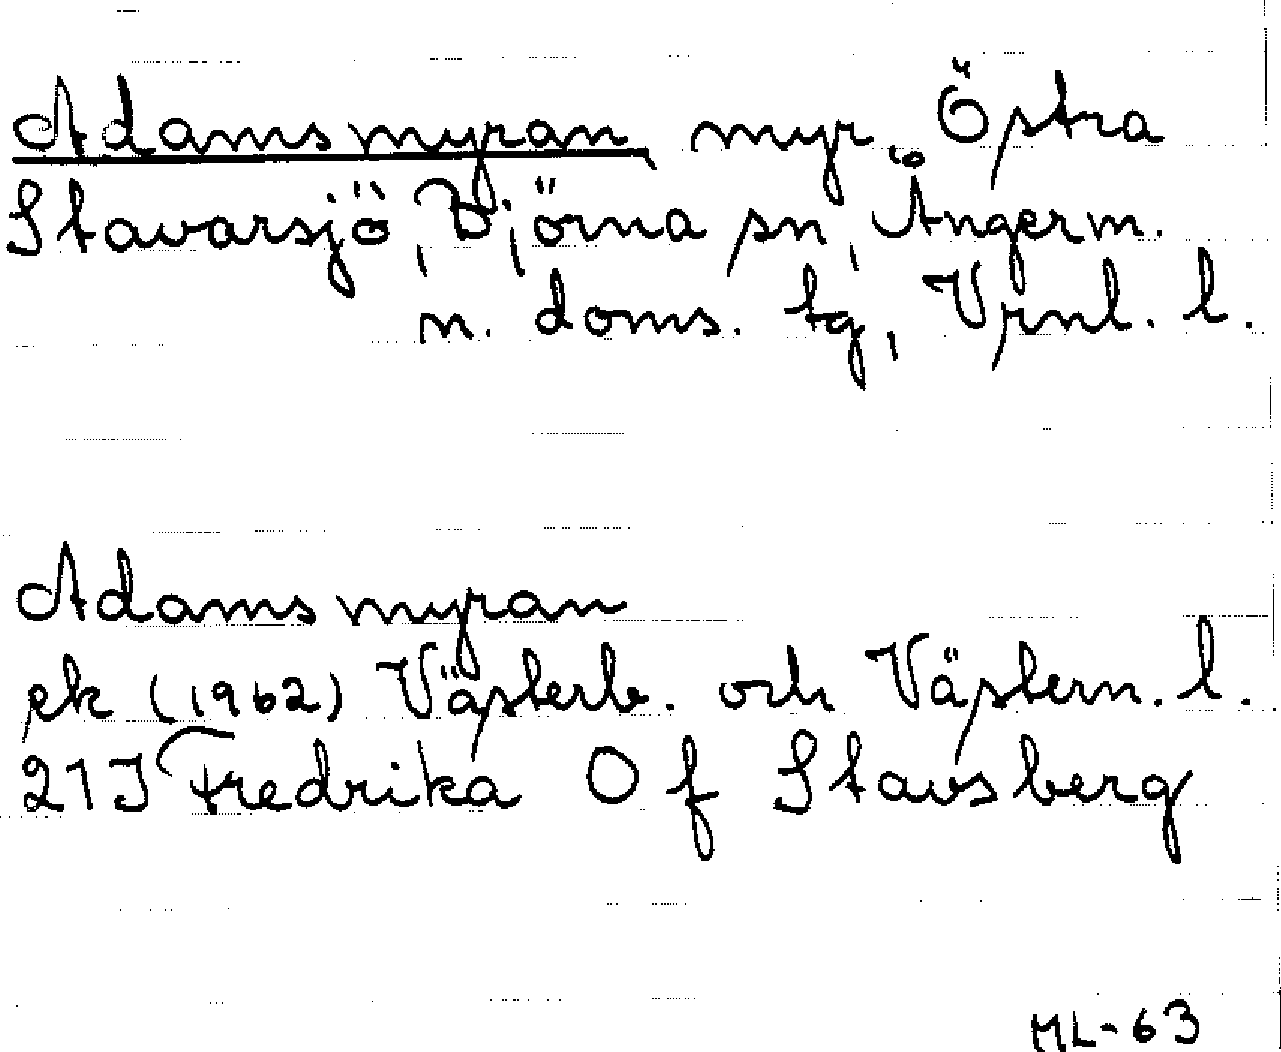 Adamsmyran myr, Östra
Stavarsjö, Björna sn, Ångerm.
n. doms. tg, Vrnl. l.
Adamsmyran
ek (1962) Västerb. och Västern. l.
21J Fredrika O f Stavsberg
ML-63